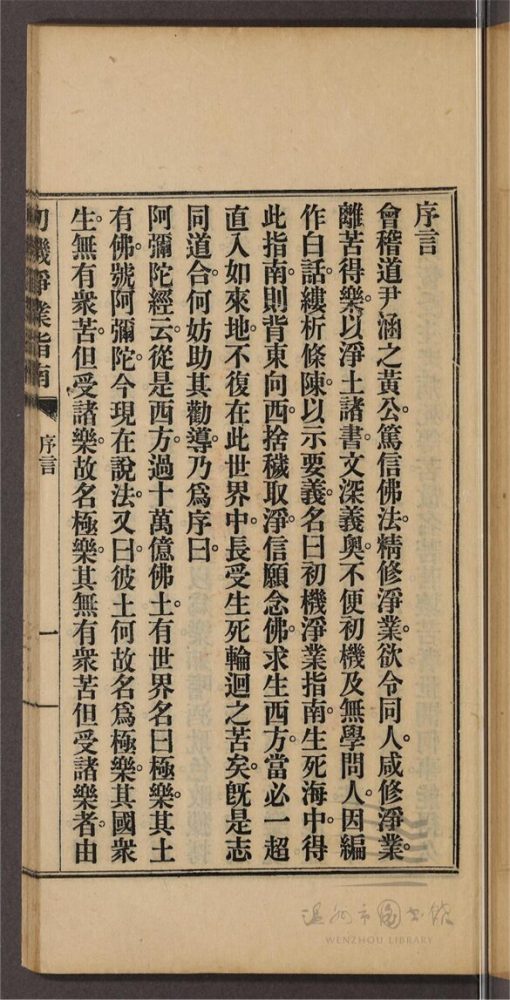 序言
會稽道尹涵之黃公。篤信佛法。精修淨業。欲令同人。咸修淨業。
離苦得樂。以淨土諸書。文深義奧。不便初機。及無學問人。因編
作白話。縷析條陳。以示要義。名曰初機淨業指南。生死海中。得
此指南。則背東向西。捨穢取淨。信願念佛。求生西方。當必一超
直入如來地。不復在此世界中。長受生死輪迴之苦矣。旣是志
同道合。何妨助其勸導。乃爲序曰。
阿彌陀經云。從是西方。過十萬億佛土。有世界名曰極樂。其土
有佛。號阿彌陀。今現在說法。又曰。彼土何故名爲極樂。其國衆
生。無有衆苦。但受諸樂。故名極樂。其無有衆苦。但受諸樂者。由
初機淨業指南 序言 一
溫州市圖書館
WENZHOU LIBRARY